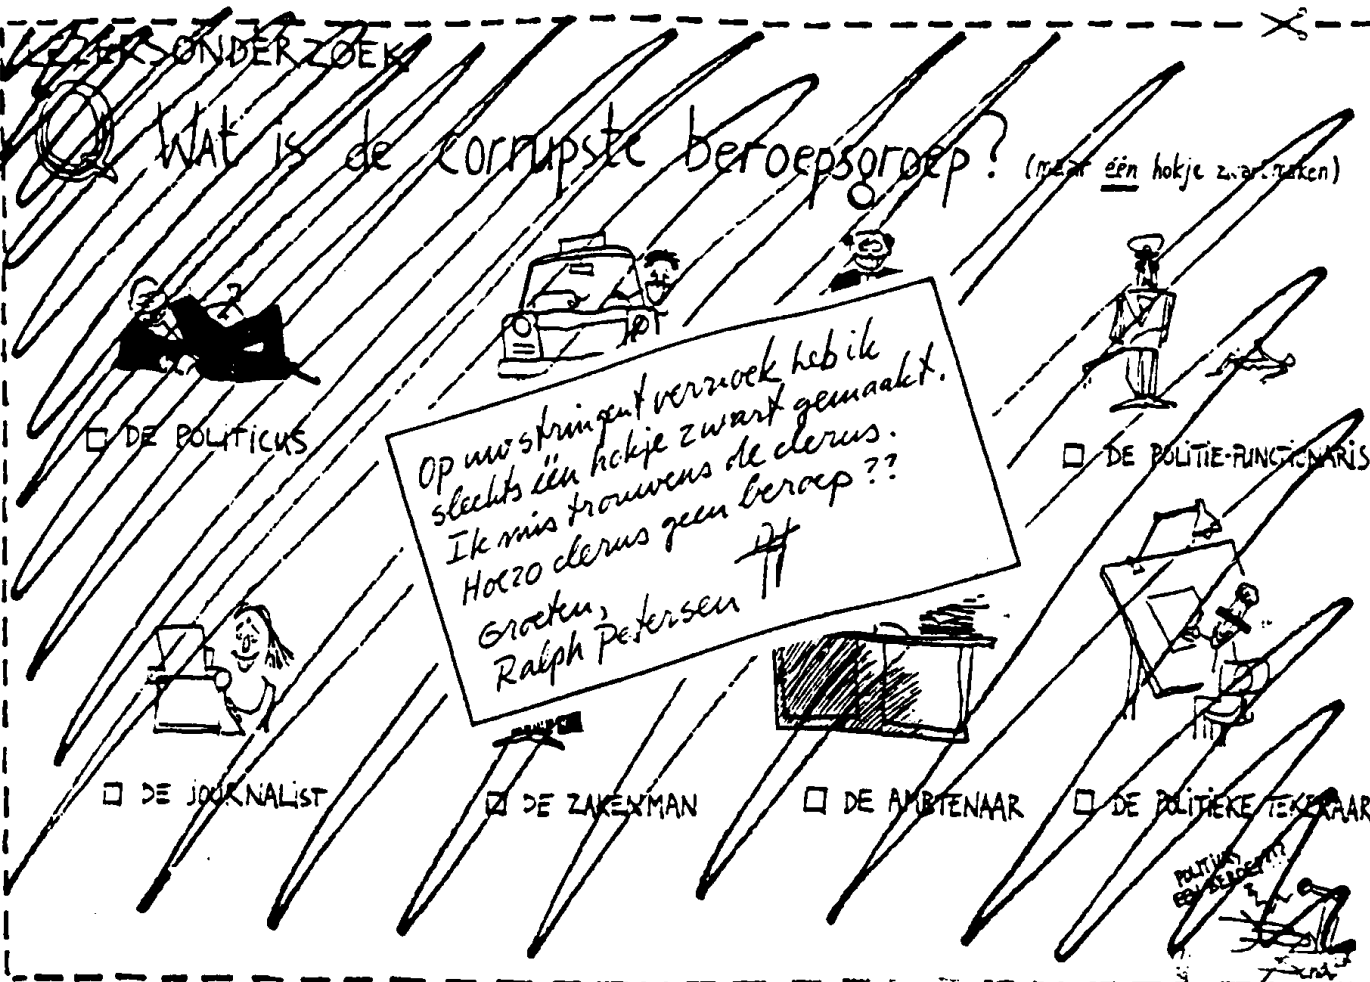 LEZERSONDERZOEK
Q Wat is de corrupste beroepsgroep? (maar één hokje zwartmaken)
□ DE POLITICUS
□ DE POLITIE-FUNCTIONARIS
Op uw stringent verzoek heb ik
slechts één hokje zwart gemaakt.
Ik mis trouwens de clerus.
Hoezo clerus geen beroep??
Groeten,
Ralph Petersen
□ DE JOURNALIST
□ DE ZAKENMAN
□ DE AMBTENAAR
□ DE POLITIEKE TEKENAAR
POLITICUS
EEN BEROEP???